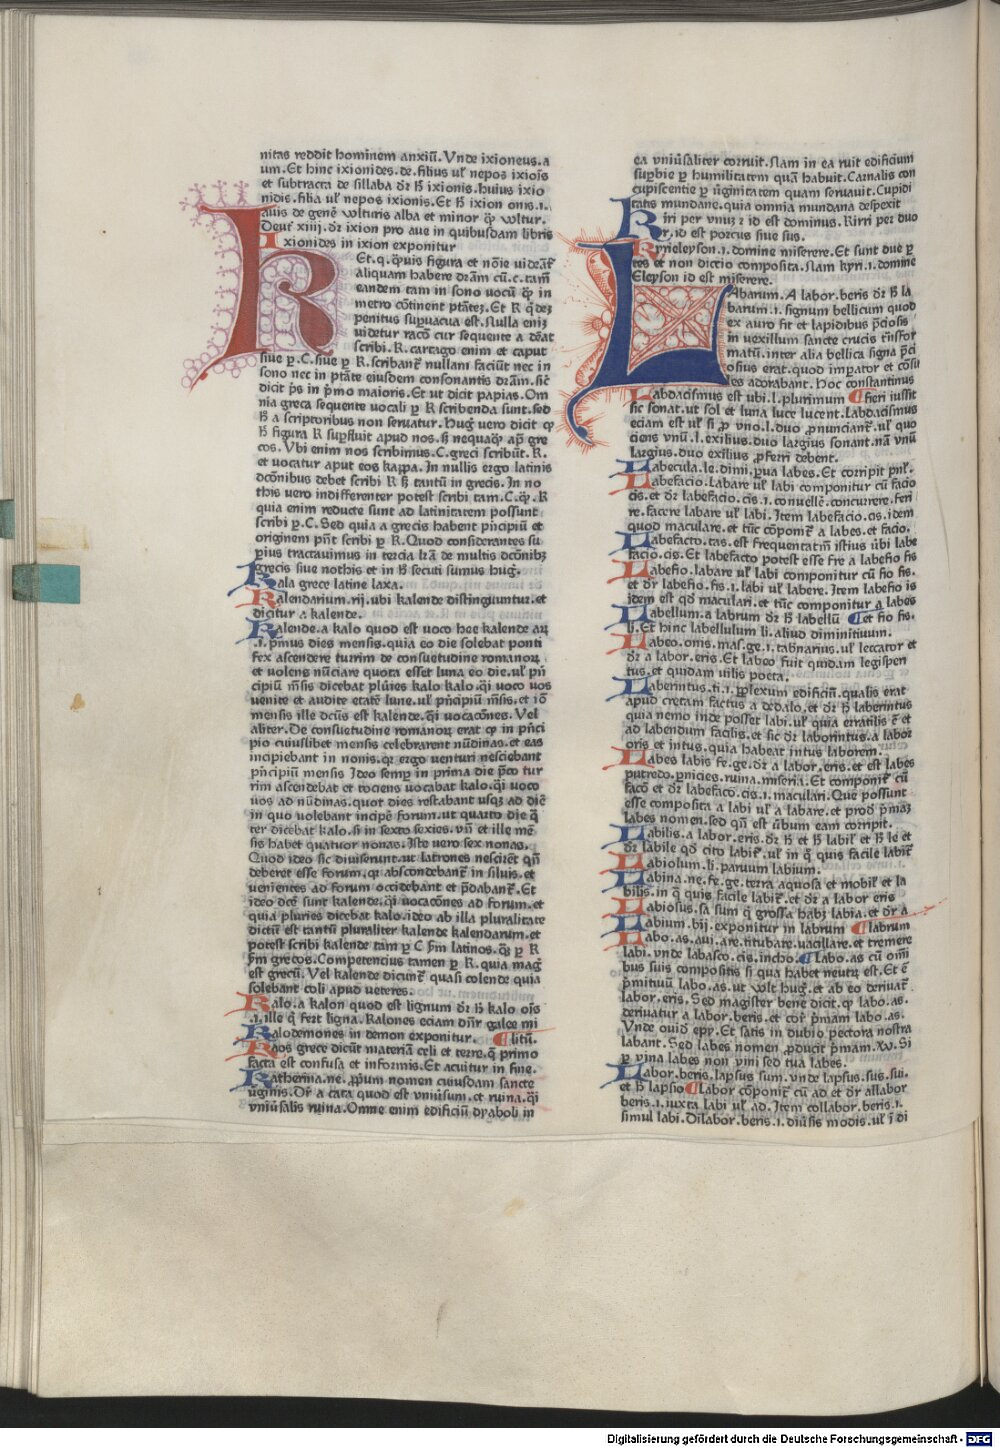 nitas reddit hominem anxiū. Vnde ixioneus. a
um. Et hinc ixionides. de. filius ul' nepos ixiōis
et subtracta de sillaba dr̄ ħ ixionis. huius ixio
nidis. filia ul' nepos ixionis. Et ħ ixion onis .i.
auis de genē wlturis alba et minor q̄ wltur.
Deut̄ xiiij. dr̄ ixion pro aue in quibusdam libris
Ixionides in ixion exponitur
K Et. q. q̄uis figura et nōīe uideāt̄
aliquam habere dr̄am cū. c. tam̄
eandem tam in sono uocū q̄ in
metro cōtinent ptātez. Et K q̄dez
penitus supuacua est. Nulla eniz
uidetur racō cur sequente a dēat
scribi. K. cartago enim et caput
siue p. C. siue p K. scribant̄ nullam faciūt nec in
sono nec in ptāte eiusdem consonantis dr̄am. sic̄
dicit p̄s in p̄mo maioris. Et ut dicit papias. Om
nia greca sequente vocali p K scribenda sunt. sed
ħ a scriptoribus non seruatur. Hug̃ uero dicit q̄
ħ figura K supfluit apud nos. s; nequaq̄ ap̄ gre
cos. Vbi enim nos scribimus. C. greci scribūt. K.
et vocatur aput eos kappa. In nullis ergo latinis
dcōnibus debet scribi K s; tantū in grecis. In no
this uero indifferenter potest scribi tam. C. q̄. K
quia enim reducte sunt ad latinitatem possunt
scribi p. C. Sed quia a grecis habent p̄ncipiū et
originem pn̄t scribi p K. Quod considerantes su
perius tractauimus in tercia l̄ra de multis dcōnibz
grecis siue nothis et in ħ secuti sumus hug̃.
Kala grece latine laxa.
Kalendarium. rij. ubi kalende distinguuntur. et
dicitur a kalende.
Kalende. a kalo quod est uoco hee kalende arꝝ
.i. p̄mus dies mensis. quia eo die solebat ponti
fex ascendere turrim de consuetudine romanorꝝ
et volens nūciare quota esset luna eo die. ul' p̄n
cipiū mēsis dicebat plūries kalo kalo. q̄i uoco uos
uenite et audite etatē lune. ul' p̄ncipiū mēsis. et iō
mensis ille dcūs est kalende. q̄i uocacōnes. Vel
aliter. De consuetudine romanorꝝ erat q̄ in p̄nci
pio cuiuslibet mensis celebrarent nūdinas. et eas
incipiebant in nonis. qr ergo venturi nesciebant
p̄ncipium mensis Ideo semp in prima die p̄co tur
rim ascendebat et tociens uocabat kalo. q̄i uoco
uos ad nūdinas. quot dies restabant usqz ad diē
in quo uolebant incipē forum. ut quarto die q̄
ter dicebat kalo. si in sexto sexies. vn̄ et ille mē
sis habet quatuor nonas. Iste uero sex nonas.
Quod ideo sic diuiserunt. ut latrones nescirēt qn̄
deberet esse forum. qr abscondebant̄ in siluis. et
uenientes ad forum occidebant et p̄dabant̄. Et
ideo dcē sunt kalende. q̄i uocacōnes ad forum. et
quia pluries dicebat kalo. ideo ab illa pluralitate
dictū est tantū pluraliter kalende kalendarum. et
potest scribi kalende tam p C s̄m latinos. q̄z p K
s̄m grecos. Competencius tamen p K. quia mag̃
est grecū. Vel kalende dicunt̄ quasi colende quia
solebant coli apud ueteres.
Kalo. a kalon quod est lignum dr̄ ħ kalo oīs
.i. ille q̄ fert ligna. Kalones eciam dn̄r galee mi
Kalodemones in demon exponitur. ¶ litū.
Kaos grece dicūt materiā celi et terre. q̄ primo
facta est confusa et informis. Et acuitur in fine.
Katherina. ne. ppium nomen cuiusdam sancte
uginis. Dr̄ a cata quod est vniūsum. et ruina. q̄i
vniūsalis ruina. Omne enim edificiū dyaboli in
ea vniūsaliter corruit. Nam in ea ruit edificium
supbie p humilitatem quā habuit. Carnalis con
cupiscentie p ūginitatem quam seruauit. Cupidi
tatis mundane. quia omnia mundana despexit
Kir in per vnuz r id est dominus. Kirri per duo
r. id est porcus siue sus.
Kyrieleyson .i. domine miserere. Et sunt due p
tes et non dictio composita. Nam kyri .i. domine
Eleyson id est miserere.
LAbarum. A labor. beris dr̄ ħ la
barum .i. signum bellicum quod
ex auro fit et lapidibus p̄ciosis
in uexillum sancte crucis trāsfor
matū. inter alia bellica signa p̄ci
osius erat. quod imperator et cōsu
les adorabant. Hoc constantinus
Labdacismus est ubi .l. plurimum ¶ fieri iussit
sic sonat. ut sol et luna luce lucent. Labdacismus
eciam est ul' si p vno .l. duo pnunciant̄. ul' quo
ciens vnū .l. exilius. duo largius sonant. nā vnū
largius. duo exilius pferri debent.
Labecula. le. dimi. parua labes. Et corripit pnl'.
Labefacio. labare ul' labi componitur cū facio
cis. et dr̄ labefacio. cis .i. conuellē. concurrere. feri
re. facere labare ul' labi. Item labefacio. cis. idem
quod maculare. et tūc cōponit̄ a labes. et facio.
Labefacto. tas. est frequentatiū istius ūbi labe
facio. cis. Et labefacto potest esse fre a labefio fis
Labefio. labare ul' labi componitur cū fio fis.
et dr̄ labefio. fis .i. labi ul' labere. Item labefio is
idem est qd maculari. et tūc componitur a labes
Labellum. a labrum dr̄ ħ labellū ¶ et fio fis.
li. Et hinc labellulum li. aliud diminitiuum.
Labeo. onis. mas. ge .i. tabnarius. ul' leccator et
dr̄ a labor. eris. Et labeo fuit quidam legispen
tus. et quidam uilis poeta.
Laberintus. ti .i. pplexum edificiū. qualis erat
apud cretam factus a dedalo. et dr̄ ħ laberintus
quia nemo inde posset labi. ul' quia erratilis ē et
ad labendum facilis. et sic dr̄ laborintus. a labor
oris et intus. quia habeat intus laborem.
Labes labis fe. ge. dr̄ a labor. eris. et est labes
putredo. pnicies. ruina. miseria. Et componit̄ cū
facō et dr̄ labefaco. cis .i. maculari. Que possunt
esse composita a labi ul' a labare. et prod̄ p̄maz
labes nomen. sed qn̄ est ūbum eam corripit.
Labilis. a labor. eris. dr̄ ħ et ħ labil' et ħ le et
dr̄ labile qd cito labit̄. ul' in q̄ quis facile labit̄
Labiolum. li. paruum labium.
Labina. ne. fe. ge. terra aquosa et mobil' et la
bilis. in q̄ quis facile labit̄. et dr̄ a labor eris
Labiosus. sa sum q̄ grossa habz labia. et dr̄ a
Labium. bij. exponitur in labrum ¶ labrum
Labo. as. aui. are. titubare. uacillare. et tremere
labi. vnde labasco. cis. incho. ¶ Labo. as cū om̄i
bus suis compositis si qua habet neutꝝ est. Et ē
p̄mituū labo. as. ut wlt hug̃. et ab eo deriuat̄
labor. eris. Sed magister bene dicit. q̄ labo. as.
deriuatur a labor. beris. et cor̄ p̄mam labo. as.
Vnde ouid epy. Et satis in dubio pectora nostra
labant. Sed labes nomen pducit p̄mam. xv. Si
p vina labes non vini sed tua labes.
Labor. beris. lapsus sum. vnde lapsus. sus. sui.
et ħ lapsio ¶ labor cōponit̄ cū ad et dr̄ allabor
beris .i. iuxta labi ul' ad. Item collabor. beris .i.
simul labi. Dilabor. beris .i. diūsis modis. ul' ī di
Digitalisierung gefördert durch die Deutsche Forschungsgemeinschaft - DFG